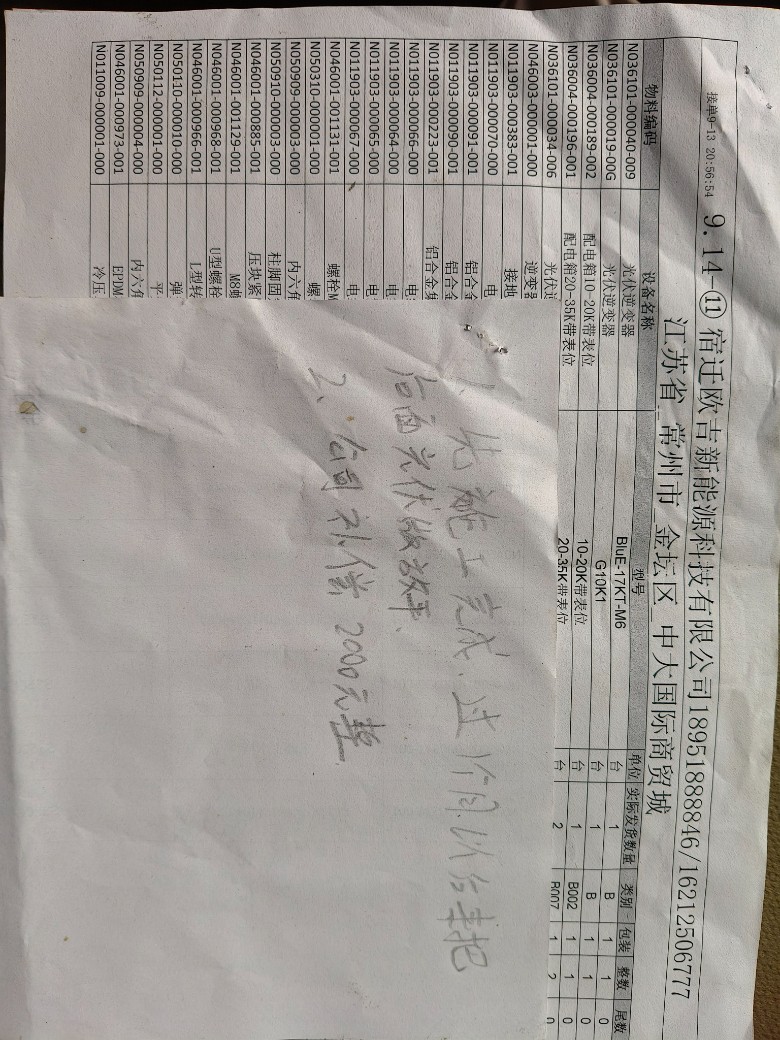 接单9-13 20:56:54 9.14-⑪ 宿迁欧吉新能源科技有限公司18951888846/16212506777
江苏省_常州市_金坛区_中大国际商贸城
物料编码 设备名称 型号 单位 实际发货数量 类别 包装 整数 尾数
N036101-000040-009 光伏逆变器 BluE-17KT-M6 台 1 B 1 1 0
N036101-000019-00G 光伏逆变器 G10K1 台 1 B 1 1 0
N036004-000189-002 配电箱10-20K带表位 10-20K带表位 台 1 B002 1 1 0
N036004-000196-001 配电箱20-35K带表位 20-35K带表位 台 2 B007 1 2 0
N036101-000034-006 光伏
N046003-000001-000 逆变
N011903-000383-001 接地
N011903-000070-000 电
N011903-000091-001 铝合金
N011903-000090-001 铝合金
N011903-000223-001 铝合金
N011903-000066-000 电
N011903-000064-000 电
N011903-000065-000 电
N011903-000067-000 电
N046001-001131-001 螺栓
N050310-000001-000 螺
N050909-000003-000 内六角
N050910-000003-000 柱脚固
N046001-000885-001 压块紧
N046001-001129-001 M8
N046001-000968-001 U型螺栓
N046001-000966-001 L型转
N050110-000010-000 弹
N050112-000001-000 平
N050909-000004-000 内六角
N046001-000973-001 EPDM
N011009-000001-000 冷压
1、先施工完成,过1个月以后来把
后面光伏做放平.
2、公司补偿2000元整